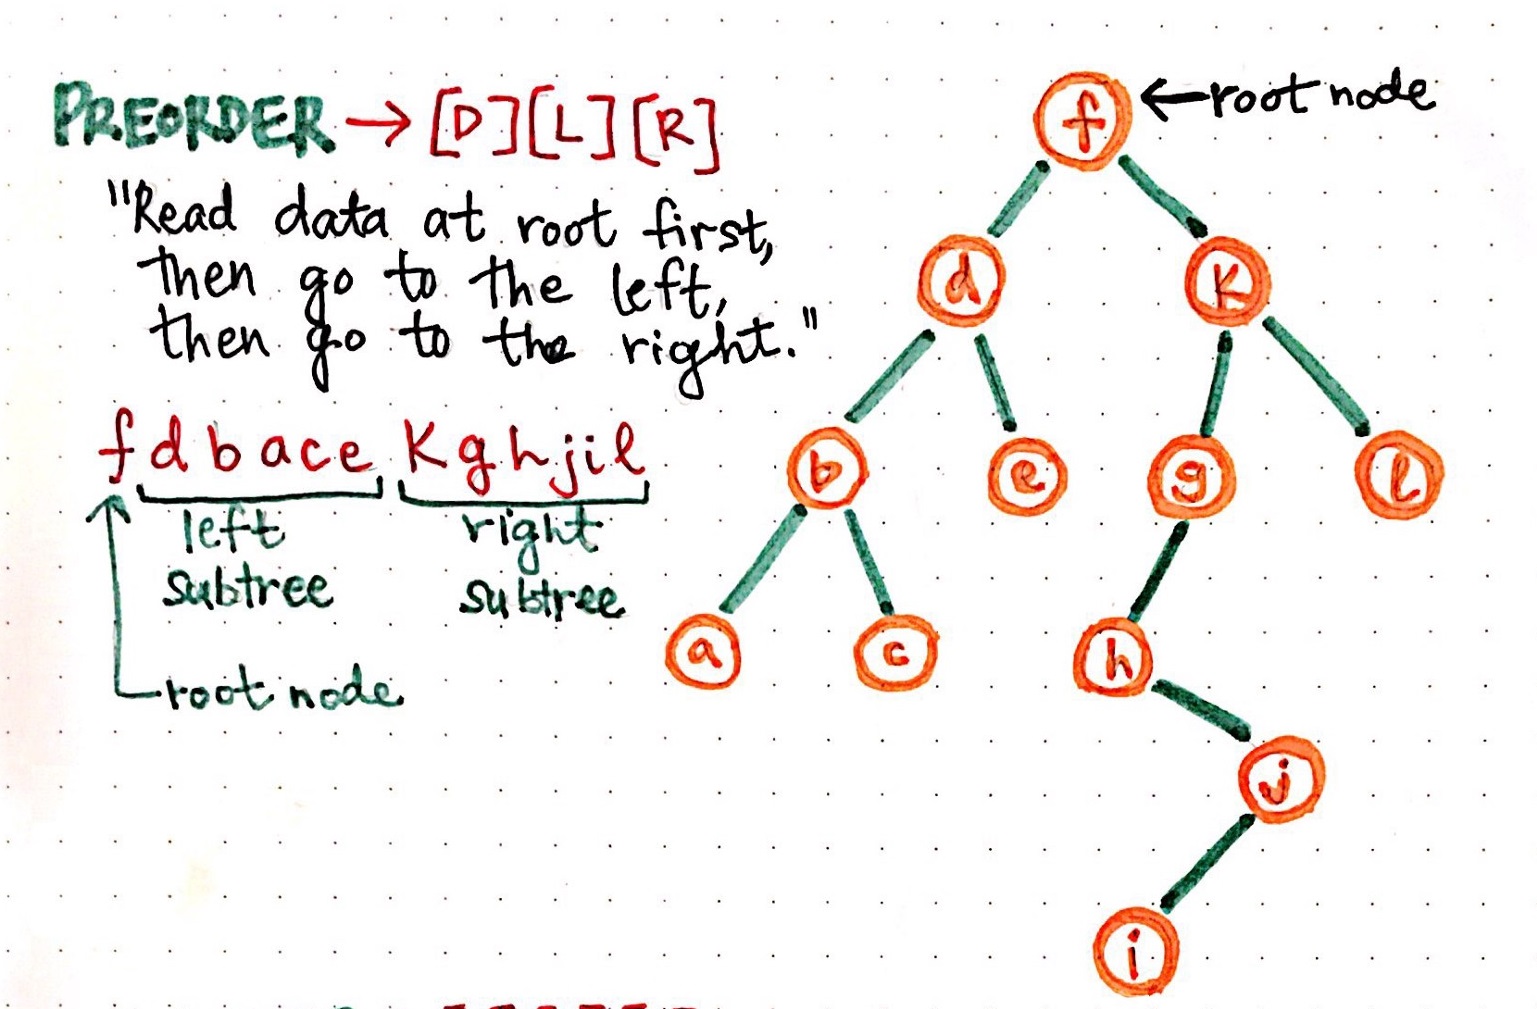 PREORDER → [D][L][R]
"Read data at root first,
then go to the left,
then go to the right."
f d b a c e K g h j i l
left subtree
right subtree
root node
f ← root node
d K
b e g l
a c h
j
i